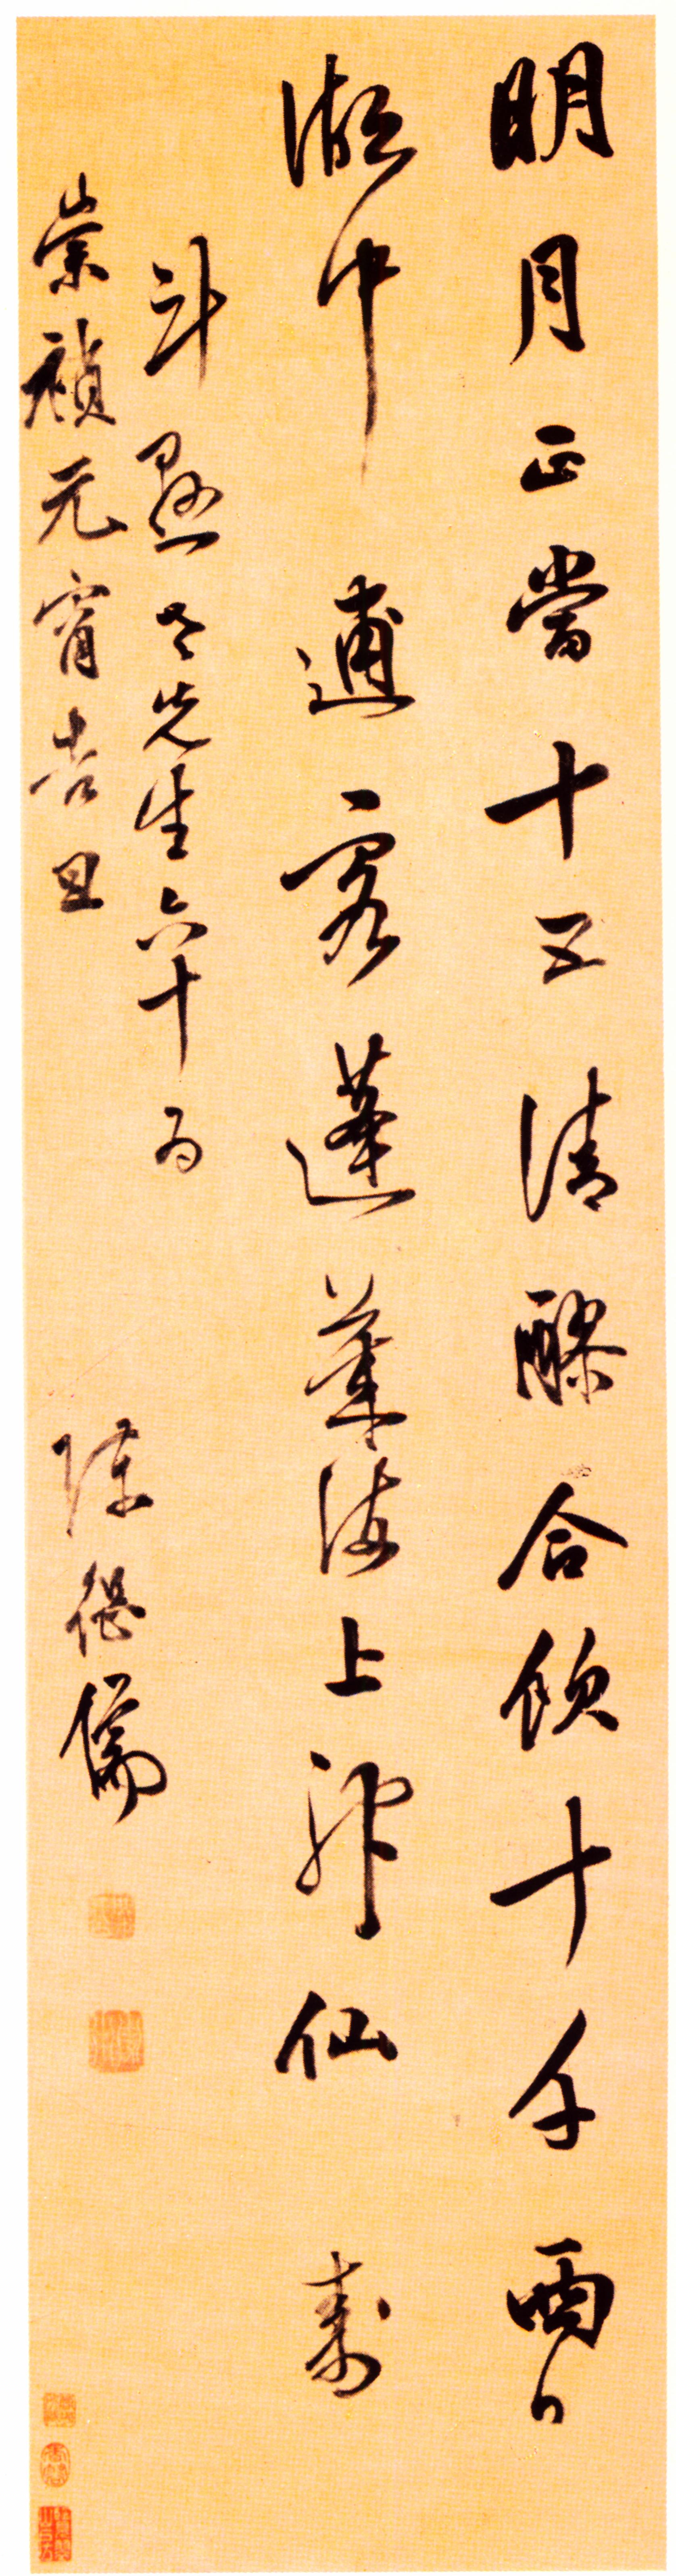 明月正當十五清醪合飲十千
湖中逋客蓬萊海上神仙 壽
斗老先生六十
崇禎元宵吉旦 陳繼儒